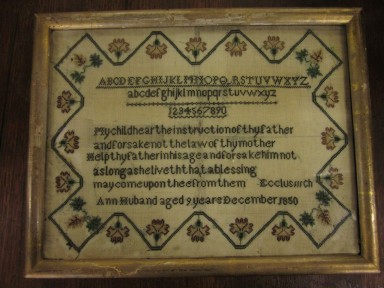 ABCDEFGHIJKLMNOPQRSTUVWXYZ
abcdefghijklmnopqrstuvwxyz
1234567890
My child hear the instruction of thy father
and forsake not the law of thy mother
Help thy father in his age and forsake him not
as long as he liveth that a blessing
may come upon thee from them Ecclus iii ch
Ann Huband aged 9 years December 1850